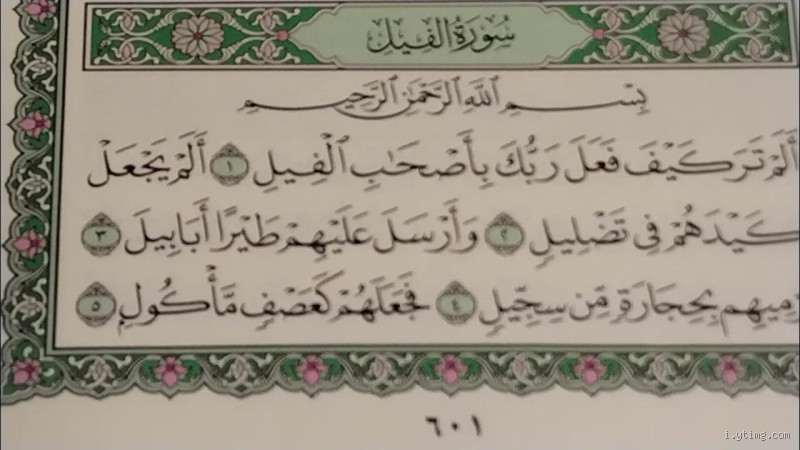 سُورَةُ الفِيلِ
بِسْمِ ٱللَّهِ ٱلرَّحْمَٰنِ ٱلرَّحِيمِ
أَلَمْ تَرَ كَيْفَ فَعَلَ رَبُّكَ بِأَصْحَٰبِ ٱلْفِيلِ ١ أَلَمْ يَجْعَلْ
كَيْدَهُمْ فِى تَضْلِيلٍ ٢ وَأَرْسَلَ عَلَيْهِمْ طَيْرًا أَبَابِيلَ ٣
رْمِيهِم بِحِجَارَةٍ مِّن سِجِّيلٍ ٤ فَجَعَلَهُمْ كَعَصْفٍ مَّأْكُولٍ ٥
٦٠١
i.ytimg.com